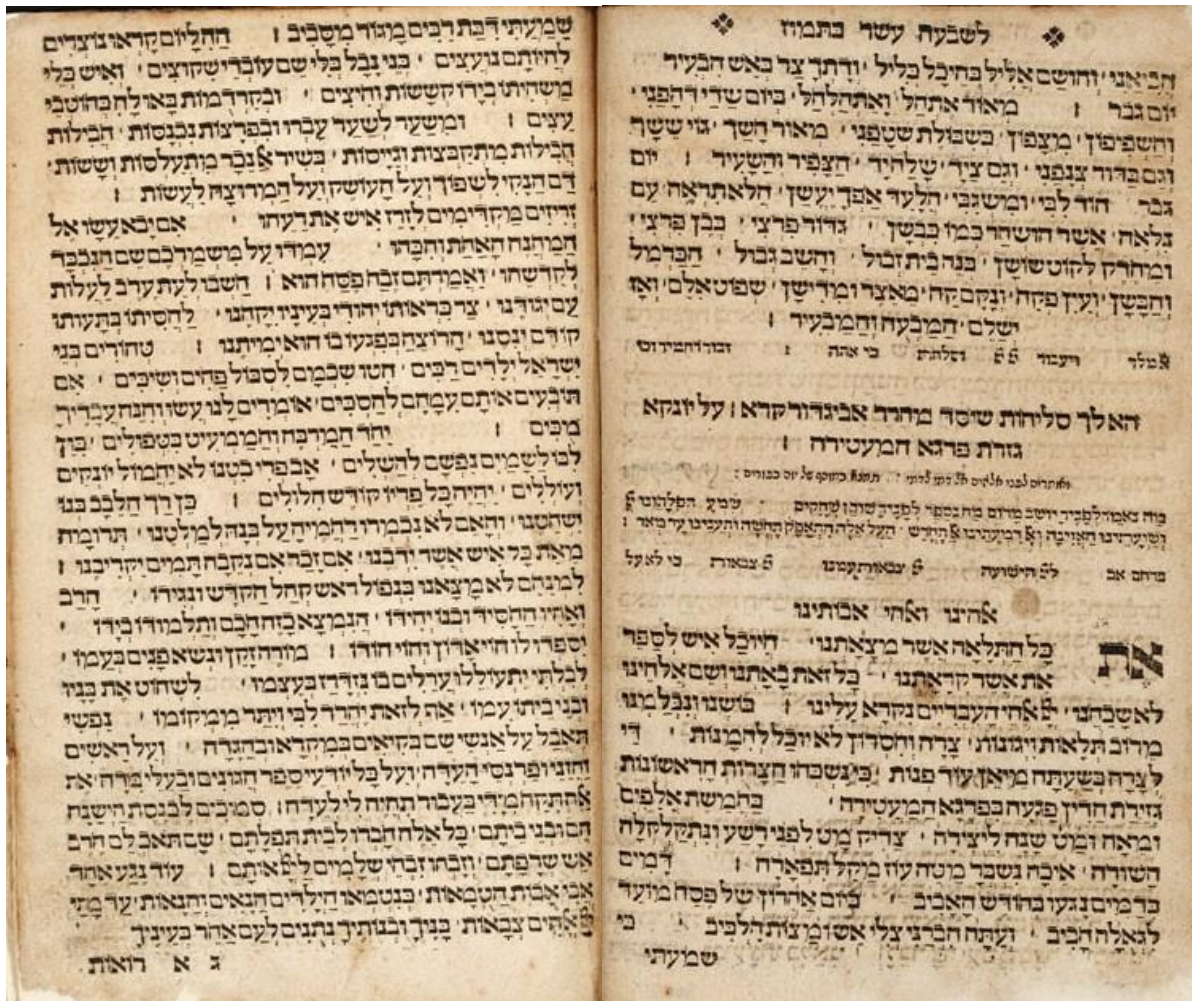 לשבעה עשר בתמוז
הביאני׳ והושם אליל בהיכל כליל׳ ודתך צר באש הבעיר
יום גבר ׃ מאוד אתהל׳ ואתהלהל׳ ביום שדי דהפני׳
והשפיפון׳ מצפון׳ כשבולת שטפני׳ מאור חשך׳ גוי ששך
וגם כדור צנפני׳ וגם ציד׳ שלח יד׳ הצפיר והשעיר ׃ יום
גבר הוד לבי׳ ומשגבי׳ הלעד אפך יעשן׳ הלא תראה עם
נלאה׳ אשר הושחר כמו כבשן׳ גדור פרצי׳ בבן פרצי׳
ומחדק לקוט שושן׳ בנה בית זבול׳ והשב גבול׳ הכרמל
והבשן׳ ועין פקח׳ ונקם קח׳ מאצר ומדישן׳ שפוט אלם׳ ואז
ישלם׳ המבעה והמבעיר ׃
אל מלך ויעבור סלחת כי אתה ׃
האלך סליחות שיסד מהרר אביגדור קרא ׃ על יונקא
גזרת פרגא המעטירה ׃
שמע
ברחם אב לי׳ הישועה צבאות עמנו צבאות כי לא על
אהינו ואהי אבותינו
את כל התלאה אשר מצאתנו׳ היוכל איש לספר
את אשר קראתנו׳ כל זאת באתנו ושם אלהינו
לא שכחנו׳ אהי העבריים נקרא עלינו ׃ בושנו ונכלמנו
מרוב תלאות ויגונות׳ צרה וחסרון לא יוכל להמנות׳ די
לצרה בשעתה מיאן עוד פנות׳ כי נשכחו הצרות הראשונות
גזירת חריץ פגעה בפרגא המעטירה׳ בחמשת אלפים
ומאה ומט שנה ליצירה׳ צדיק מט לפני רשע ונתקלקלה
השורה׳ איכה נשבר מטה עוז מקל תפארה ׃ דמים
בדמים נגעו בחודש האביב׳ ביום אחרון של פסח מועד
לגאולה הביב׳ ועתה חברני צלי אש ומצות הלביב׳ כי
שמעתי
שמעתי דבת רבים מגור מסביב ׃ ההליום קראו נוצרים
להיותם נועצים׳ בני נבל בלי שם עוברי שקוצים׳ ואיש כלי
משחיתו בידו קששות וחיצים׳ ובקרדמות באו לה כחוטבי
עצים ׃ ומשער לשער עברו ובפרצות נכנסות׳ חבילות
חבילות מתקבצות וגייסות׳ בשיר אל נכר מתעלסות וששות׳
דם הנקי לשפוך ועל העושק ועל המרוצה לעשות ׃
זריזים מקדימים לזרז איש את רעהו׳ אם יבא עשו אל
המחנה האחת והכהו׳ עמדו על משמרכם שם הנכבד
לקדשהו׳ ואמרתם זבח פסח הוא ׃ חשבו לעת ערב לעלות
עם יגודנו׳ צר בראותו יהודי בעיניו יקחנו׳ להסיתו בתעותו
קודם ינסנו׳ הרוצח בפגעו בו הוא ימיתנו ׃ טהורים בני
ישראל ילדים רכים׳ הטו שכמם לסבול פחים ושיכים׳ אם
תובעים אותם עמהם להסכים׳ אומרים לנו עשו והנה עבדיך
מכים ׃ יחד המרבה והממעיט בטפולים׳ בוין
לבו לשמים נפשם להשלים׳ אב פרי בטנו לא יחמול יונקים
ועוללים׳ יהיה כל פריו קודש הלולים ׃ כן רך הלבב בנו
ישחטנו׳ והאם לא נכמרו רחמיה על בנה למלטנו׳ תרומת
מאת כל איש אשר ידבנו׳ אם זכר אם נקבה תמים יקריבנו ׃
למנהם לא מצאנו בנפול ראש קהל הקדש ונגידו׳ הרב
ואחיו החסיד ובנו יחידו׳ הנמצא כזה חכם ותלמודו בידו׳
יספדו לו הוי אדון והוי הודו ׃ מורה זקן ונשא פנים בעמו׳
לבלתי יתעוללו ערלים בו נזדרז בעצמו׳ לשחוט את בניו
ובני ביתו עמו׳ אף לזאת יחרד לבי ויתר ממקומו׳ נפשי
תאבל על אנשי שם בקיאים במקרא ובהגדה׳ ועל ראשים
וחזני ופרנסי העדה׳ ועל כל יודעי ספר הגונים ובעלי מדה׳ את
אלה תקח מידי בעבור תהיה לי לעדה ׃ סמוכים לכנסת הישנה
הם ובני ביתם׳ כל אלה חברו לבית תפלתם׳ שם תאכלם חרב
אש שרפתם׳ ויזבחו זבחי שלמים לי׳ אותם ׃ עוד נגע אחד
אבי אבות הטמאות׳ בנטמאו הילדים הנאים והנאות׳ עד מתי
אהים צבאות׳ בניך ובנותיך נתנים לעם אחר בעיניך
ג א רואות